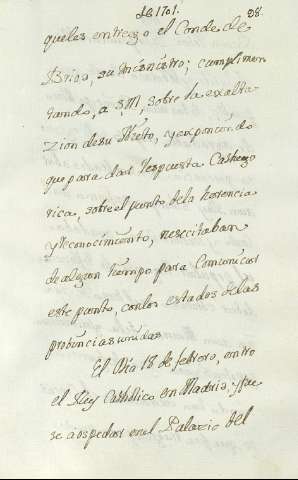 de 1701. 28.
que les entrego el Conde de
Brios, su Ministro; cumplimen
tando, a S.M, sobre la exalta
zion de su Nieto, y exponiendo
que para dar respuesta Cathego
rica, sobre el punto de la herencia
y Reconocimiento, nesecitaban
de algun tiempo para Comunicar
este punto, con los estados de las
probincias unidas
El Dia 18 de febrero, entro
el Rey Catholico en Madrid, y fue
se a ospedar en el Palacio del